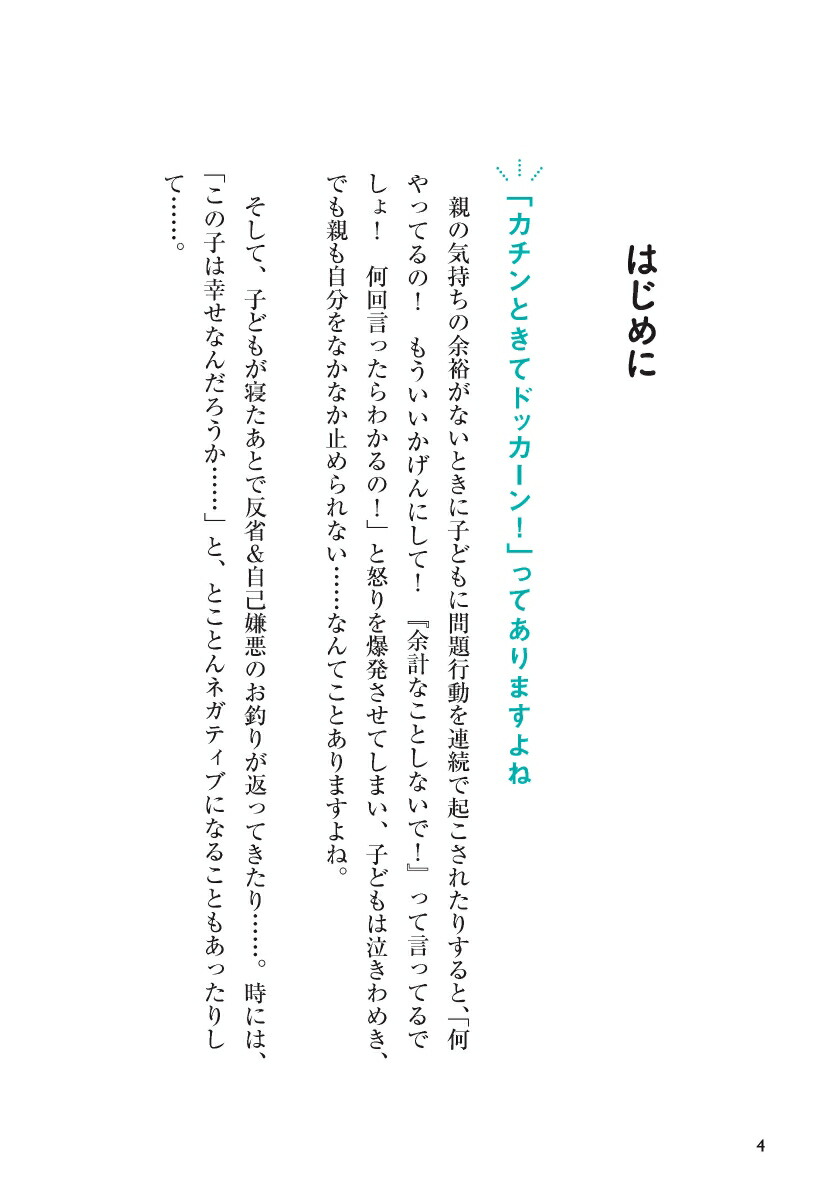 はじめに
「カチンときてドッカーン！」ってありますよね
親の気持ちの余裕がないときに子どもに問題行動を連続で起こされたりすると、「何
やってるの！　もういいかげんにして！　『余計なことしないで！』って言ってるで
しょ！　何回言ったらわかるの！」と怒りを爆発させてしまい、子どもは泣きわめき、
でも親も自分をなかなか止められない……なんてことありますよね。
そして、子どもが寝たあとで反省＆自己嫌悪のお釣りが返ってきたり……。時には、
「この子は幸せなんだろうか……」と、とことんネガティブになることもあったりし
て……。
4